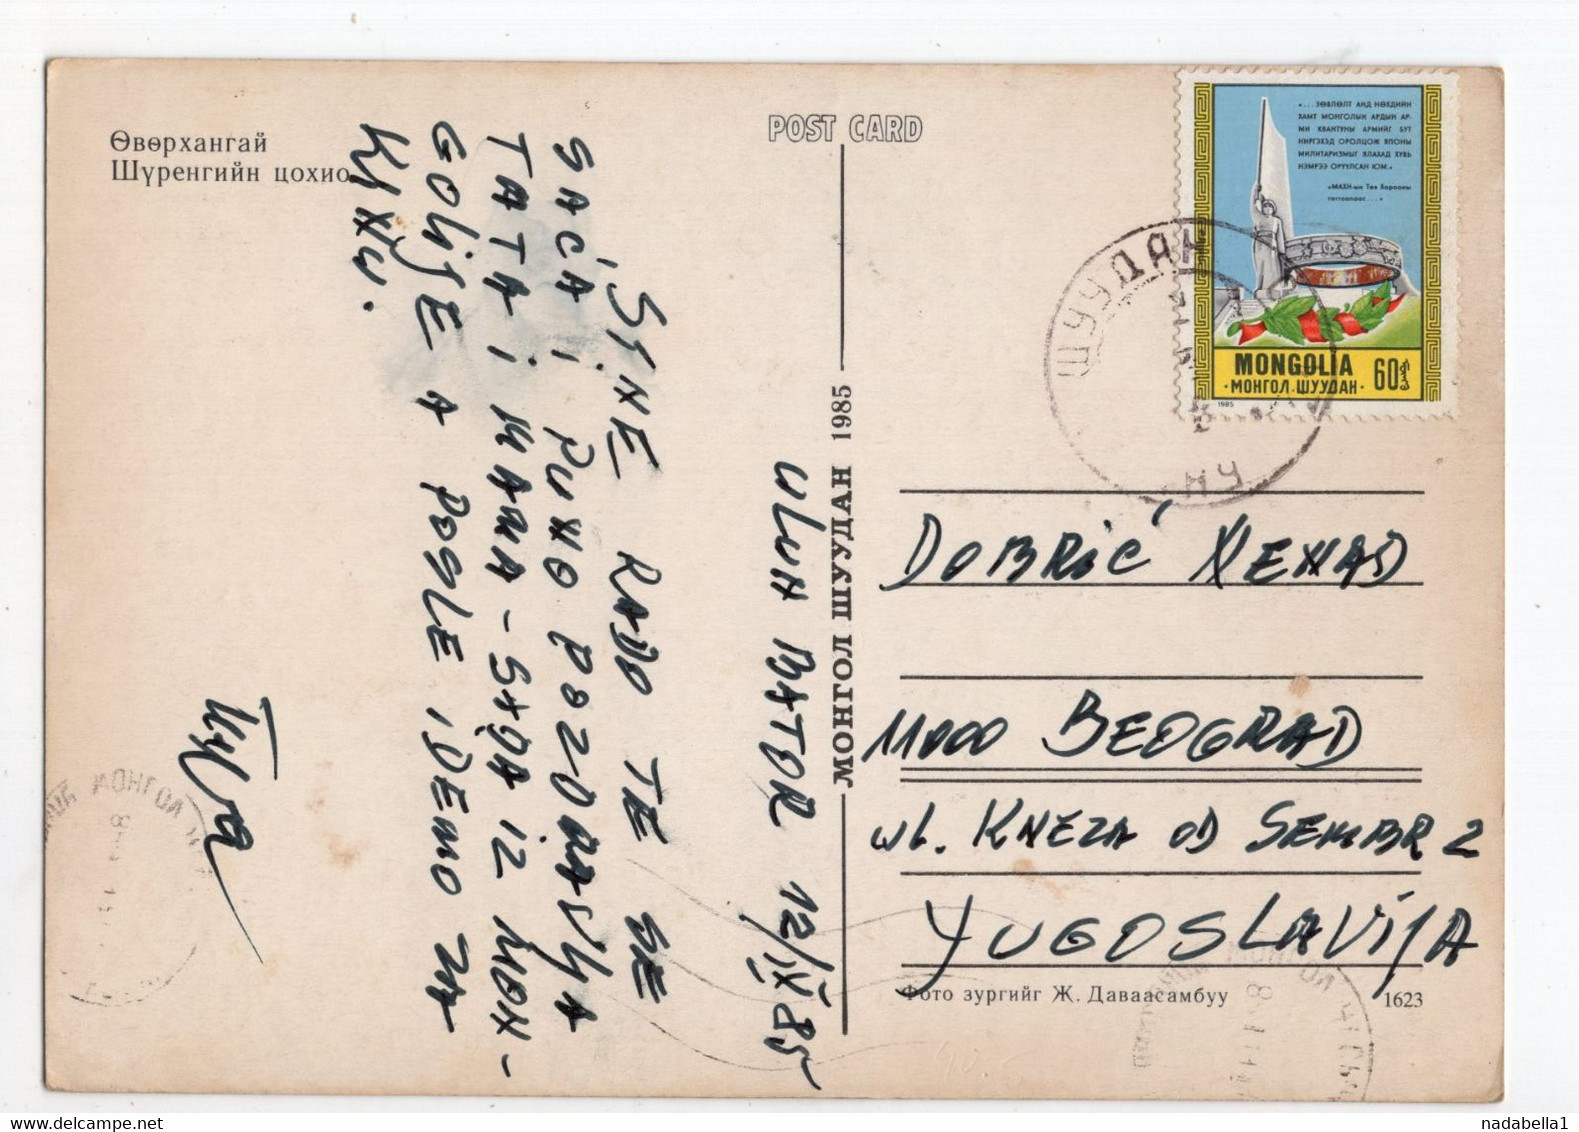 Өвөрхангай
Шүренгийн цохио
POST CARD
«...ЗӨВЛӨЛТ АНД НӨХДИЙН
ХАМТ МОНГОЛЫН АРДЫН АР-
МИ КВАНТУНЫ АРМИЙГ БУТ
НИРГЭХЭД ОРОЛЦОЖ ЯПОНЫ
МИЛИТАРИЗМЫГ ЯЛАХАД ХУВЬ
НЭМРЭЭ ОРУУЛСАН ЮМ.»
«МАХН-ын Төв Хорооны
тогтоолоос...»
MONGOLIA
МОНГОЛ ШУУДАН 60
1985
ШУУДАН
МОНГОЛ ШУУДАН 1985
ULAN BATOR 12/IX 85
SINE RADO TE SE
SAĆA I PUNO POZDRAVLJA
TATA I MAMA - SADA IZ MON-
GOLIJE A POSLE IDEMO ZA
KINU.
DOBRIĆ NENAD
11000 BEOGRAD
UL. KNEZA OD SEMBR 2
YUGOSLAVIJA
Фото зургийг Ж. Даваасамбуу
1623
МОНГОЛ
nadabella1